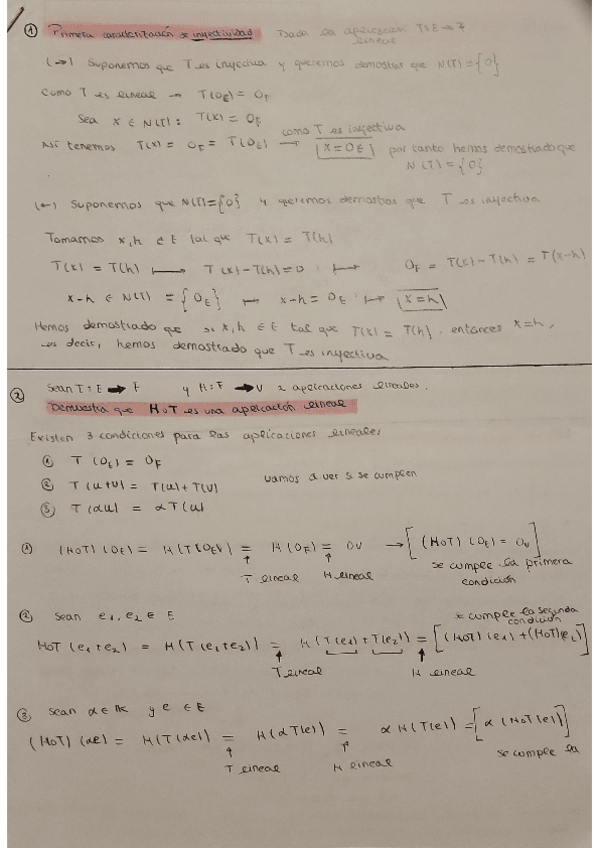 ① Primera caracterización de inyectividad Dada la aplicación T:E→F
lineal
(→) Suponemos que T es inyectiva y queremos demostrar que N(T)={0}
Como T es lineal → T(0E) = 0F
Sea x ∈ N(T): T(x) = 0F
Así tenemos T(x) = 0F = T(0E) → como T es inyectiva x=0E por tanto hemos demostrado que
N(T)={0}
(←) Suponemos que N(T)={0} y queremos demostrar que T es inyectiva
Tomamos x,h ∈ E tal que T(x) = T(h)
T(x) = T(h) ↦ T(x)-T(h)=0 ↦ 0F = T(x)-T(h) = T(x-h)
x-h ∈ N(T) = {0E} ↦ x-h = 0E ↦ x=h
Hemos demostrado que si x,h ∈ E tal que T(x) = T(h), entonces x=h,
es decir, hemos demostrado que T es inyectiva
② Sean T:E → F y H:F → V 2 aplicaciones lineales.
Demuestra que HoT es una aplicación lineal
Existen 3 condiciones para las aplicaciones lineales
① T(0E) = 0F
② T(u+v) = T(u)+T(v) vamos a ver si se cumplen
③ T(αu) = αT(u)
① (HoT)(0E) = H(T(0E)) = H(0F) = 0V → [(HoT)(0E) = 0V]
T lineal H lineal se cumple la primera
condición
② Sean e1, e2 ∈ E * cumple la segunda
condición
HoT(e1+e2) = H(T(e1+e2)) = H(T(e1)+T(e2)) = [(HoT)(e1)+(HoT)(e2)]
T lineal H lineal
③ Sean α∈K y e ∈ E
(HoT)(αe) = H(T(αe)) = H(αT(e)) = αH(T(e)) = [α(HoT(e))]
T lineal H lineal se cumple la